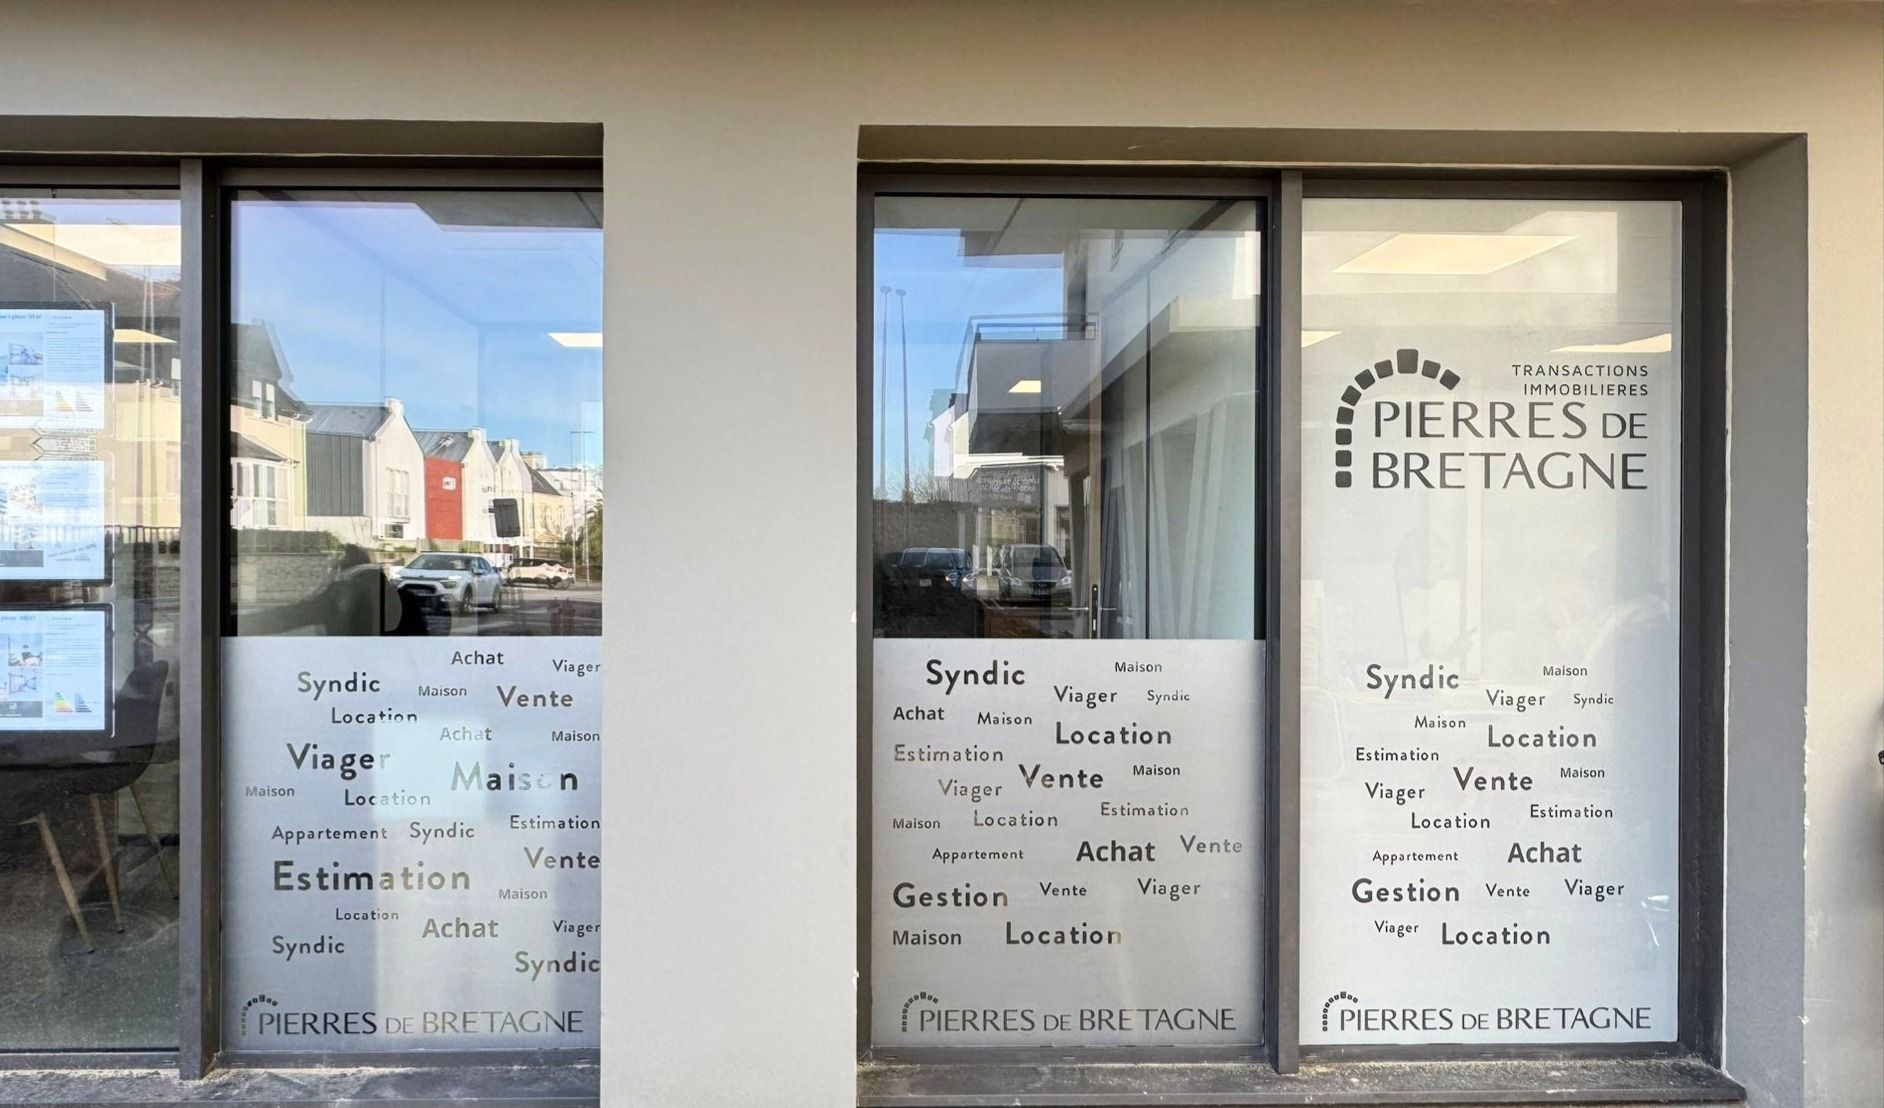 Achat
Viager
Syndic
Maison
Vente
Location
Achat
Maison
Viager
Maison
Maison
Location
Appartement
Syndic
Estimation
Vente
Estimation
Maison
Location
Achat
Viager
Syndic
Syndic
PIERRES DE BRETAGNE
Syndic
Maison
Viager
Syndic
Achat
Maison
Location
Estimation
Vente
Maison
Viager
Estimation
Maison
Location
Appartement
Achat
Vente
Gestion
Vente
Viager
Maison
Location
PIERRES DE BRETAGNE
TRANSACTIONS
IMMOBILIERES
PIERRES DE
BRETAGNE
Syndic
Maison
Viager
Syndic
Maison
Location
Estimation
Vente
Maison
Viager
Estimation
Location
Appartement
Achat
Gestion
Vente
Viager
Viager
Location
PIERRES DE BRETAGNE